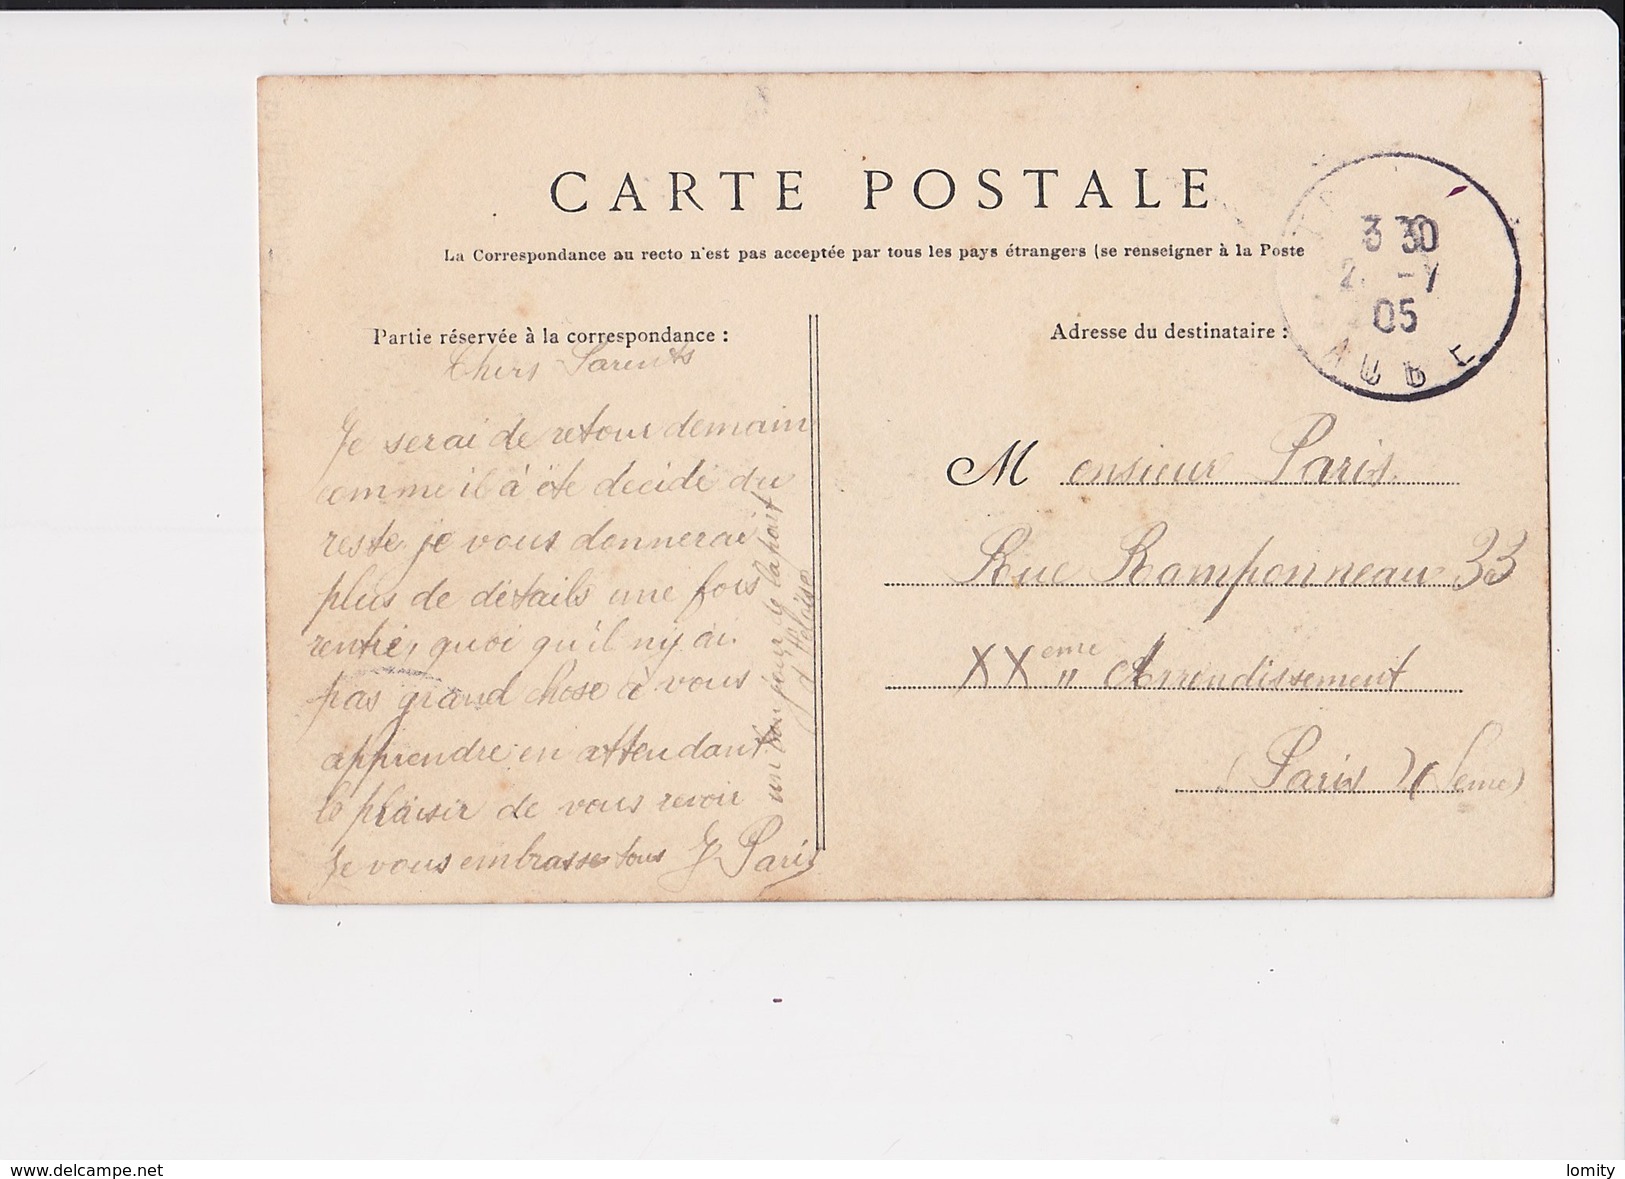 CARTE POSTALE
La Correspondance au recto n'est pas acceptée par tous les pays étrangers (se renseigner à la Poste
Partie réservée à la correspondance :
Chers Parents
Je serai de retour demain
comme il à été décidé du
reste je vous donnerai
plus de détails une fois
rentré, quoi qu'il n'y ai
pas grand chose à vous
apprendre en attendant
le plaisir de vous revoir
Je vous embrasse tous J Paris
un bonjour de la part
d'Héloïse
Adresse du destinataire :
3 30
2 -7
05
AUBE
Monsieur Paris.
Rue Ramponneau 33
XXeme Arrondissement
(Paris) (Seine)
www.delcampe.net
lomity